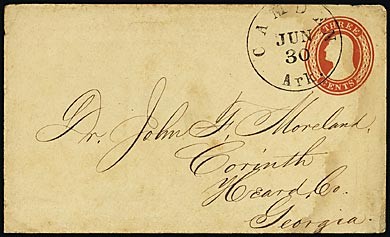 CAMDEN
JUN
30
Ark.
THREE
CENTS
Dr. John F. Moreland,
Corinth
Heard, Co.
Georgia.